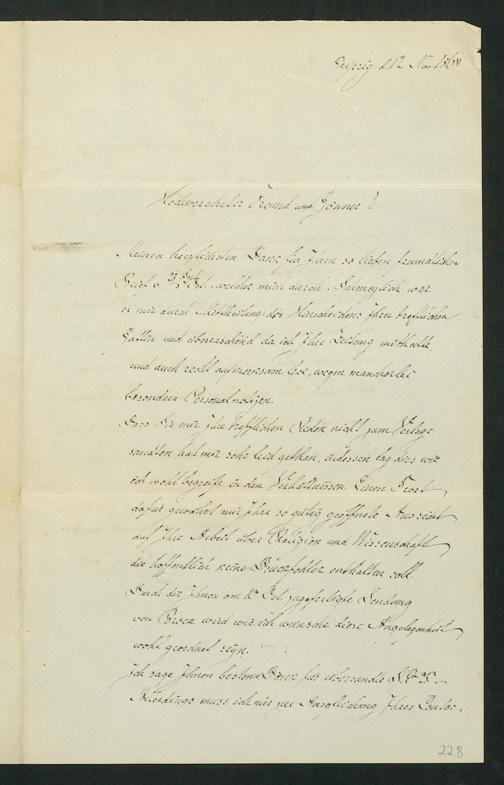 Leipzig d 12 Nov 1864
Hochverehrter Freund und Gönner!
Meinen herzlichsten Dank für Ihren so lieben freundlichen
Brief v welcher mich durch
er mir durch Mittheilung des Hinscheidens Ihrer trefflichen
Gattin und überraschend da ich Ihre Zeitung mithalte
und auch recht aufmerksam lese, wenn mancherlei
besonders Personalnotizen.
Dass Sie mir Ihre trefflichen Reden nicht zum Verlage
sandten hat mir sehr leid gethan, indessen lag dies wie
ich wohl begreife in den Verhältnissen. Einen Trost
dafür gewährt mir Ihre so gütig geöffnete Aussicht
auf Ihre Arbeit über Religion und Wissenschaft
die hoffentlich keine Druckfehler enthalten soll
Durch die Ihnen am Oct. zugefertigte Sendung
von wird wie ich wünsche diese Angelegenheit
wohl geordnet seyn.
Ich sage Ihnen besten Dank für übersandte
Allerdings muss ich mir zur Ausgleichung Ihres Contos.
228